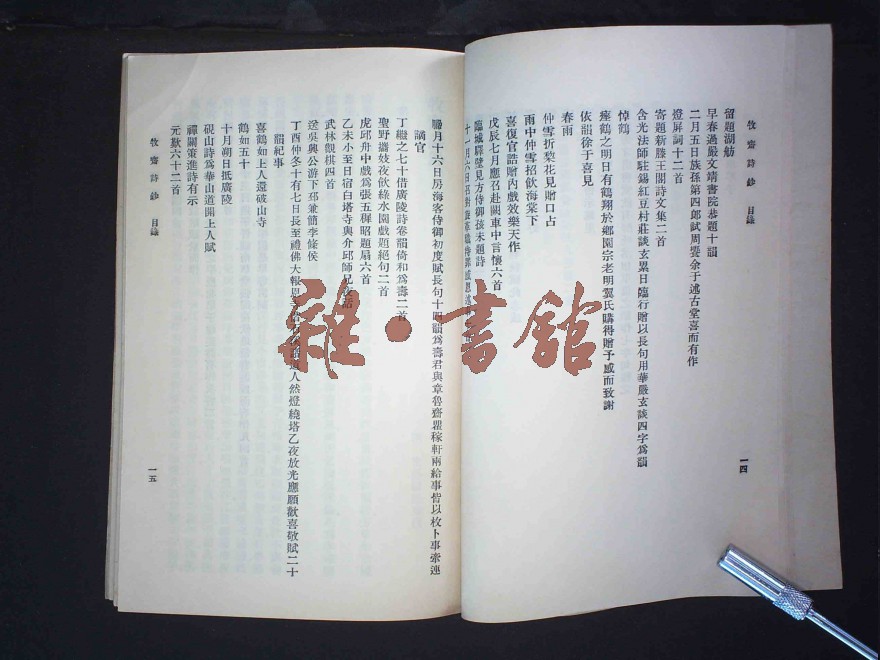 牧齋詩鈔 目錄
一四
留題湖舫
早春過嚴文靖書院恭題十韻
二月五日族孫第四郎試周要余于述古堂喜而有作
燈屏詞十二首
寄題新滕王閣詩文集二首
含光法師駐錫紅豆村莊談玄累日臨行贈以長句用華嚴玄談四字爲韻
悼鶴
瘞鶴之明日有鶴翔於鄉園宗老明翼氏購得贈予感而致謝
依韻徐于喜見
春雨
仲雪折梨花見贈口占
雨中仲雪招飲海棠下
喜復官誥贈內戲效樂天作
戊辰七月應召赴闕車中言懷六首
臨城驛壁見方侍御孩未題詩
十一月六日召對
聯月十六日房海客侍御初度賦長句十四韻爲壽君與章魯齋瞿稼軒兩給事皆以枚卜事牽連
謫官
丁繼之七十借廣陵詩卷韻倚和爲壽二首
聖野攜妓夜飲綠水園戲題絕句二首
虎邱舟中戲爲張五穉昭題扇六首
乙未小至日宿白塔寺與介邱師兄夜話
武林觀棋四首
送吳興公游下邳兼簡李條侯
丁酉仲冬十有七日長至禮佛大報恩寺 人然燈繞塔乙夜放光應願歡喜敬賦二十
韻紀事
喜鶴如上人還破山寺
鶴如五十
十月朔日抵廣陵
硯山詩爲華山道開上人賦
禪關策進詩有示
元歎六十二首
牧齋詩鈔 目錄
一五
雜·書館